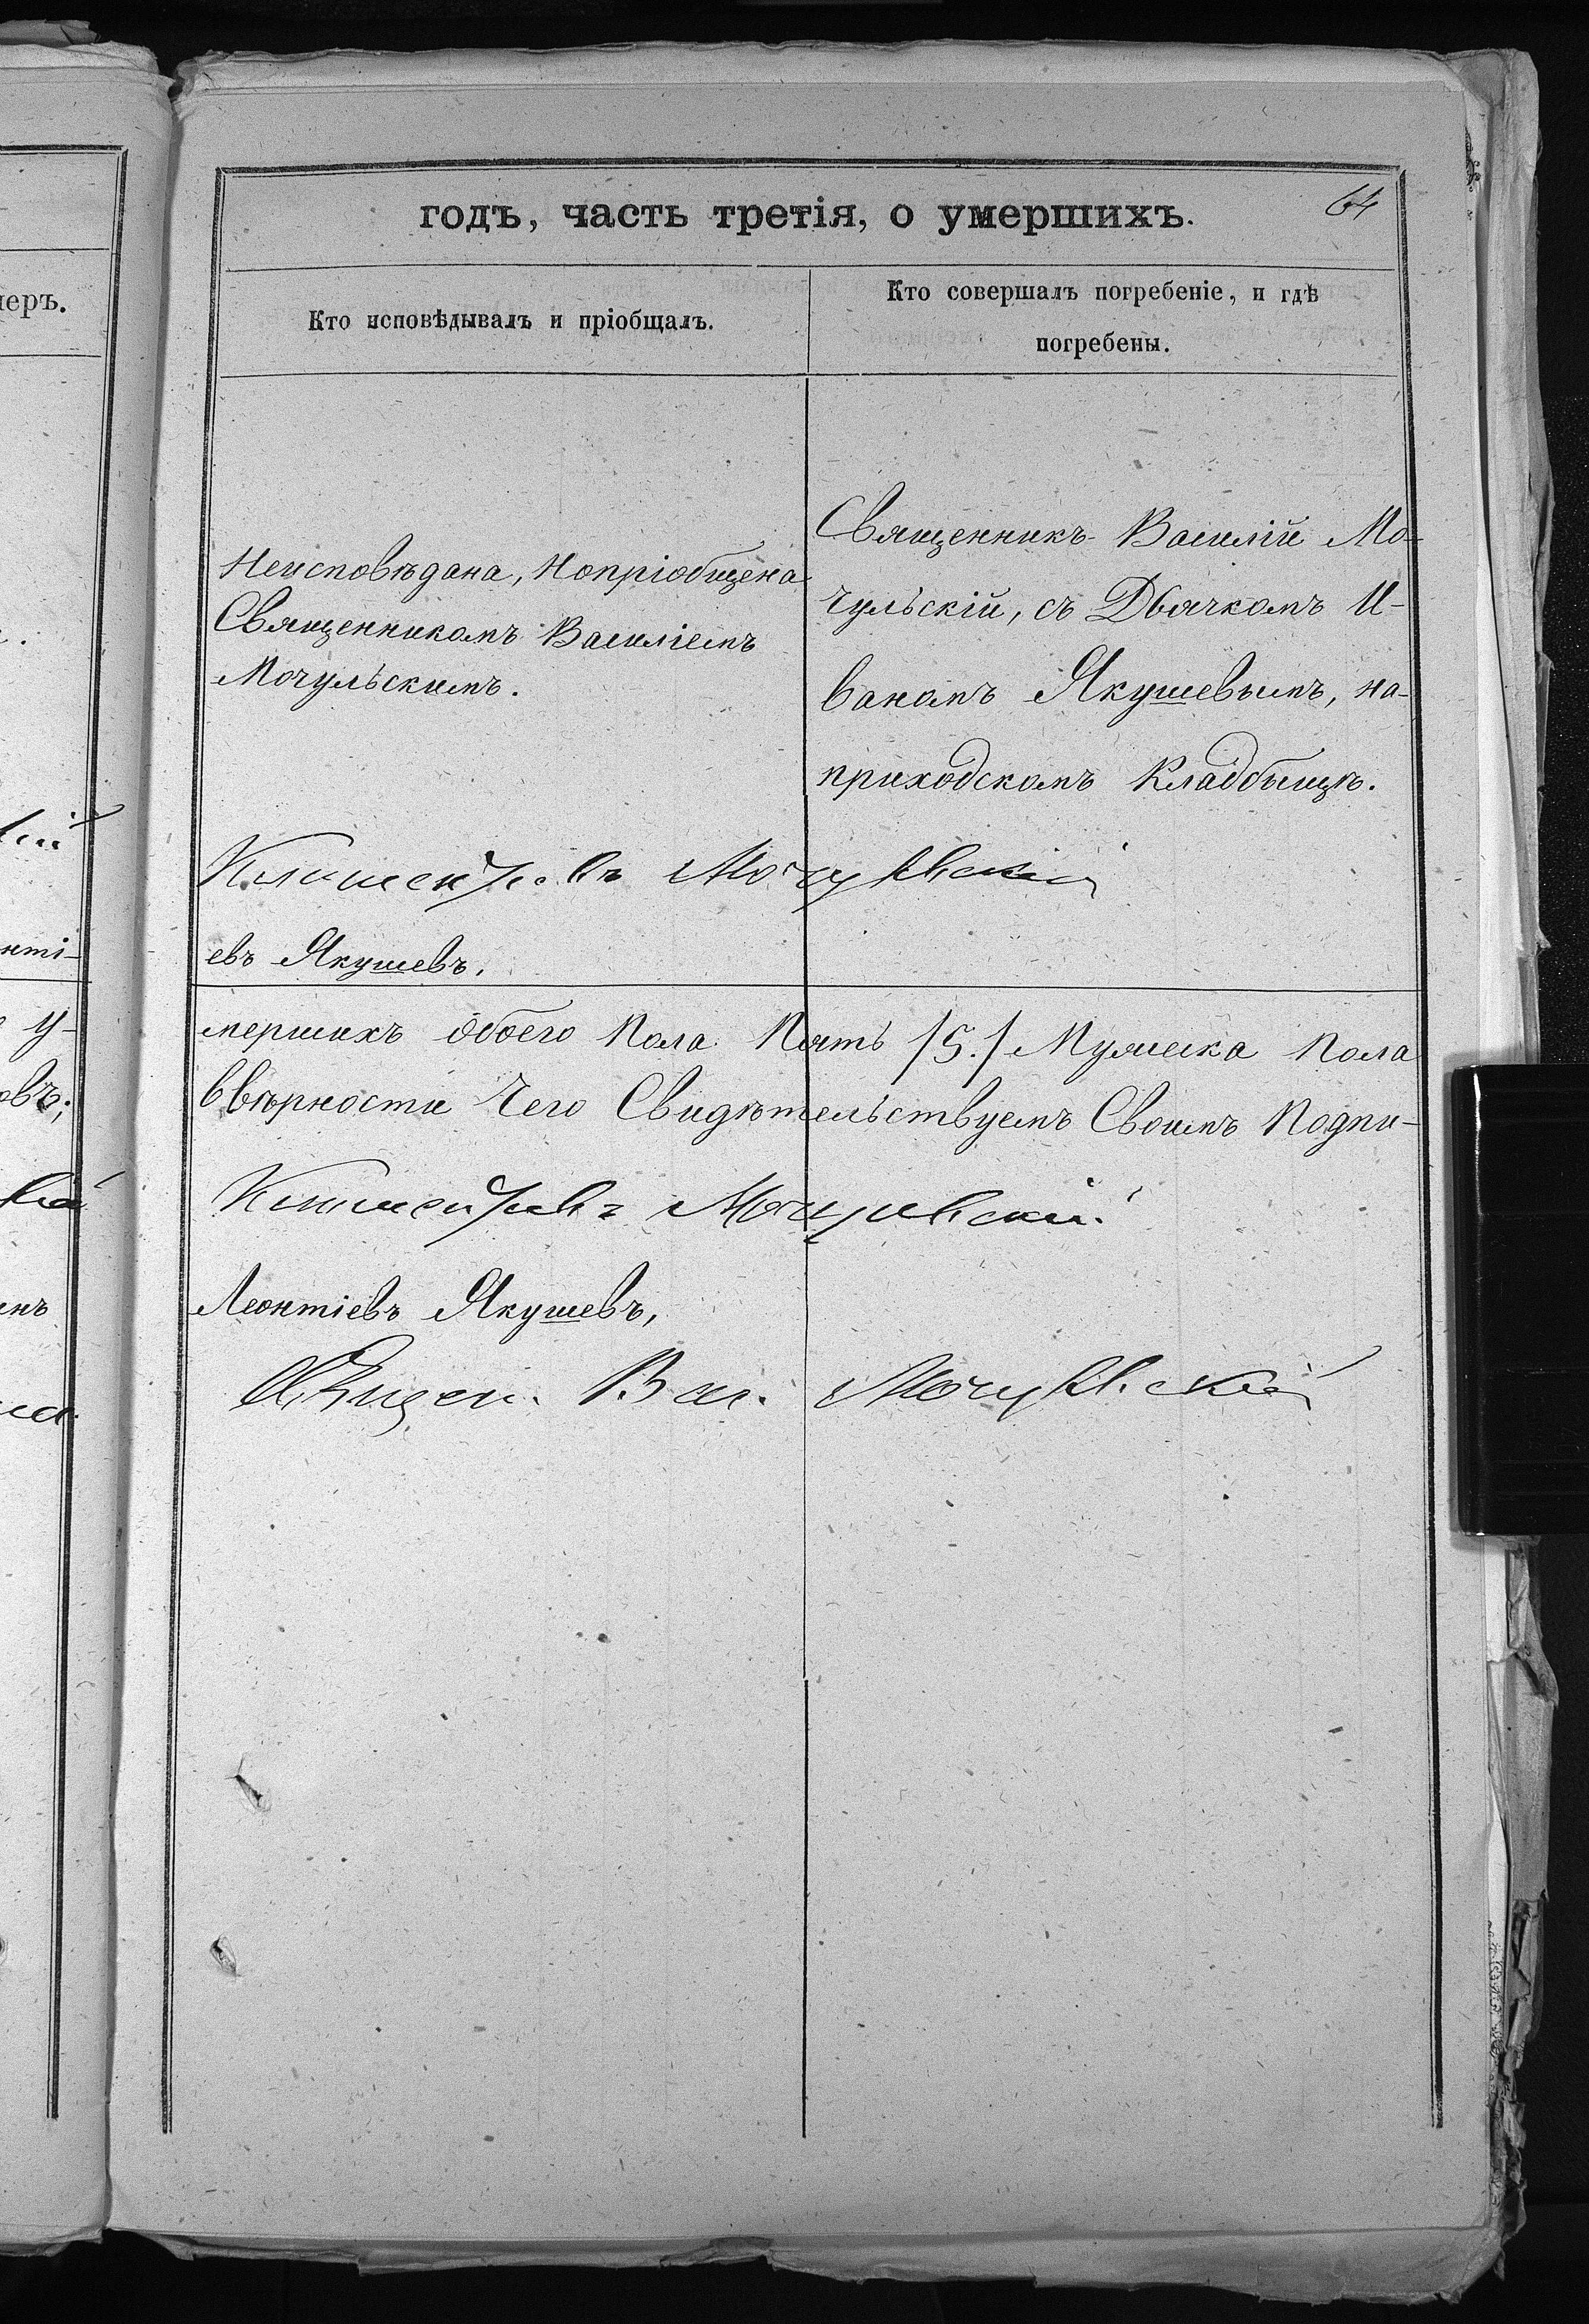 годъ, часть третія, о умершихъ.
64
Кто исповѣдывалъ и пріобщалъ.
Кто совершалъ погребеніе, и гдѣ
погребены.
меръ.
Неисповѣдана, Нопріобщена
Священникомъ Василіемъ
Мочульскимъ.
Священникъ Василій Мо-
чульскій, съ Дьячкомъ И-
ваномъ Якушевымъ, на-
приходскомъ Кладбыщѣ.
Климентьевъ Мочульскій
нті-
евъ Якушевъ.
у-
мершихъ обоего Пола Пять /5./ Мужеска Пола
овъ;
ввѣрности Чего Свидѣтельствуемъ Своимъ Подпи-
Климентьевъ Мочульскій.
Леонтіевъ Якушевъ,
Священ. Вас. Мочульскій